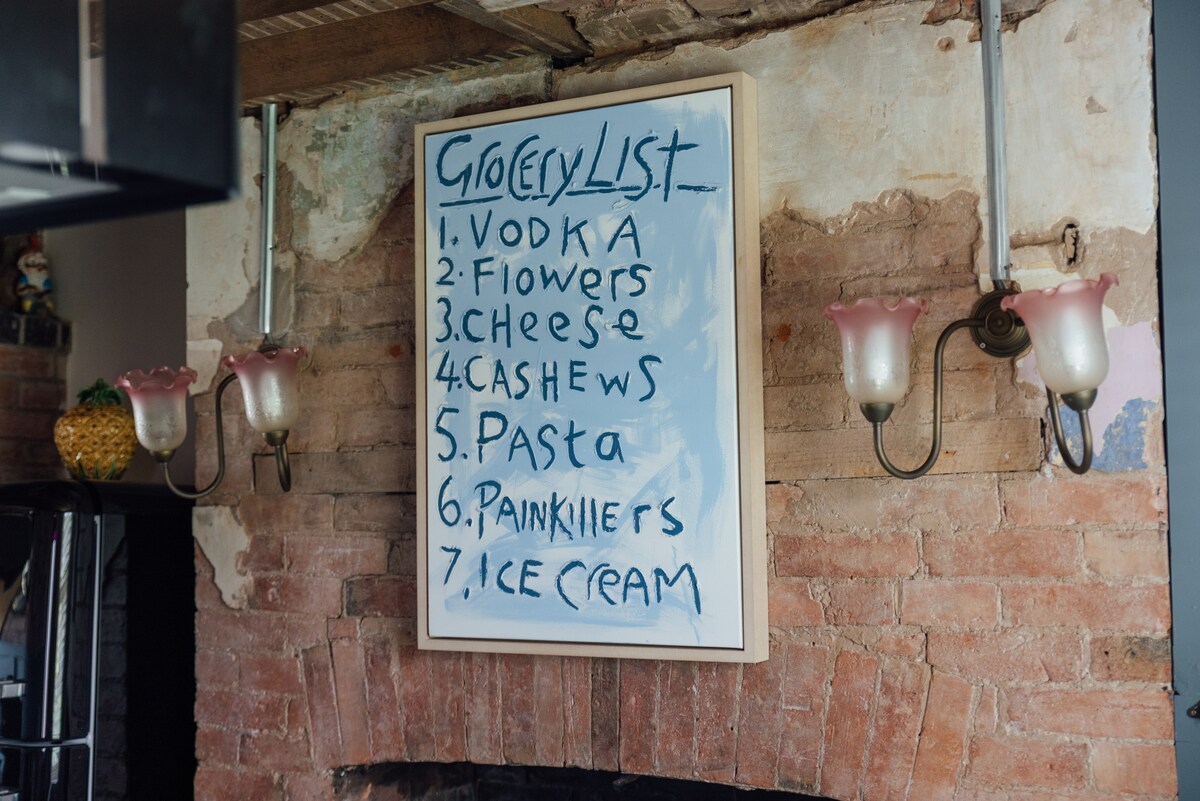 Grocery List
1. VODKA
2. Flowers
3. CHeeSe
4. CASHEwS
5. PASta
6. PAINKIllErs
7. ICE CreAM